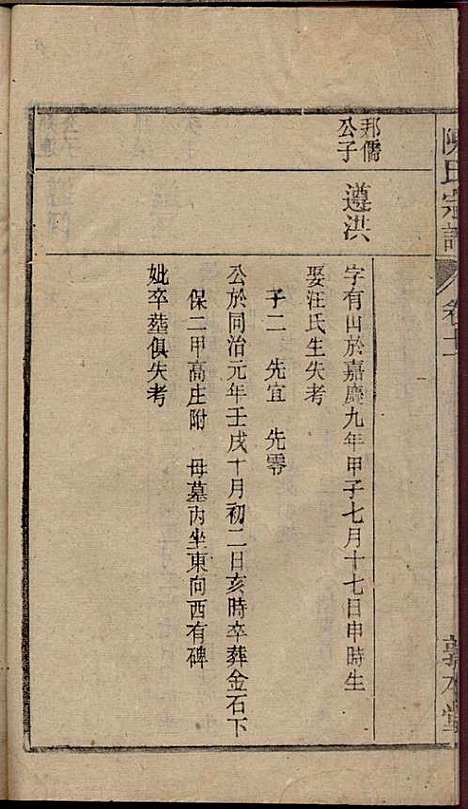 陳氏宗譜 卷十一 敦本堂
邦儒
公子
遵洪
字有山於嘉慶九年甲子七月十七日申時生
娶汪氏生失考
子二 先宜 先零
公於同治元年壬戌十月初二日亥時卒葬金石下
保二甲高庄附 母墓內坐東向西有碑
妣卒葬俱失考